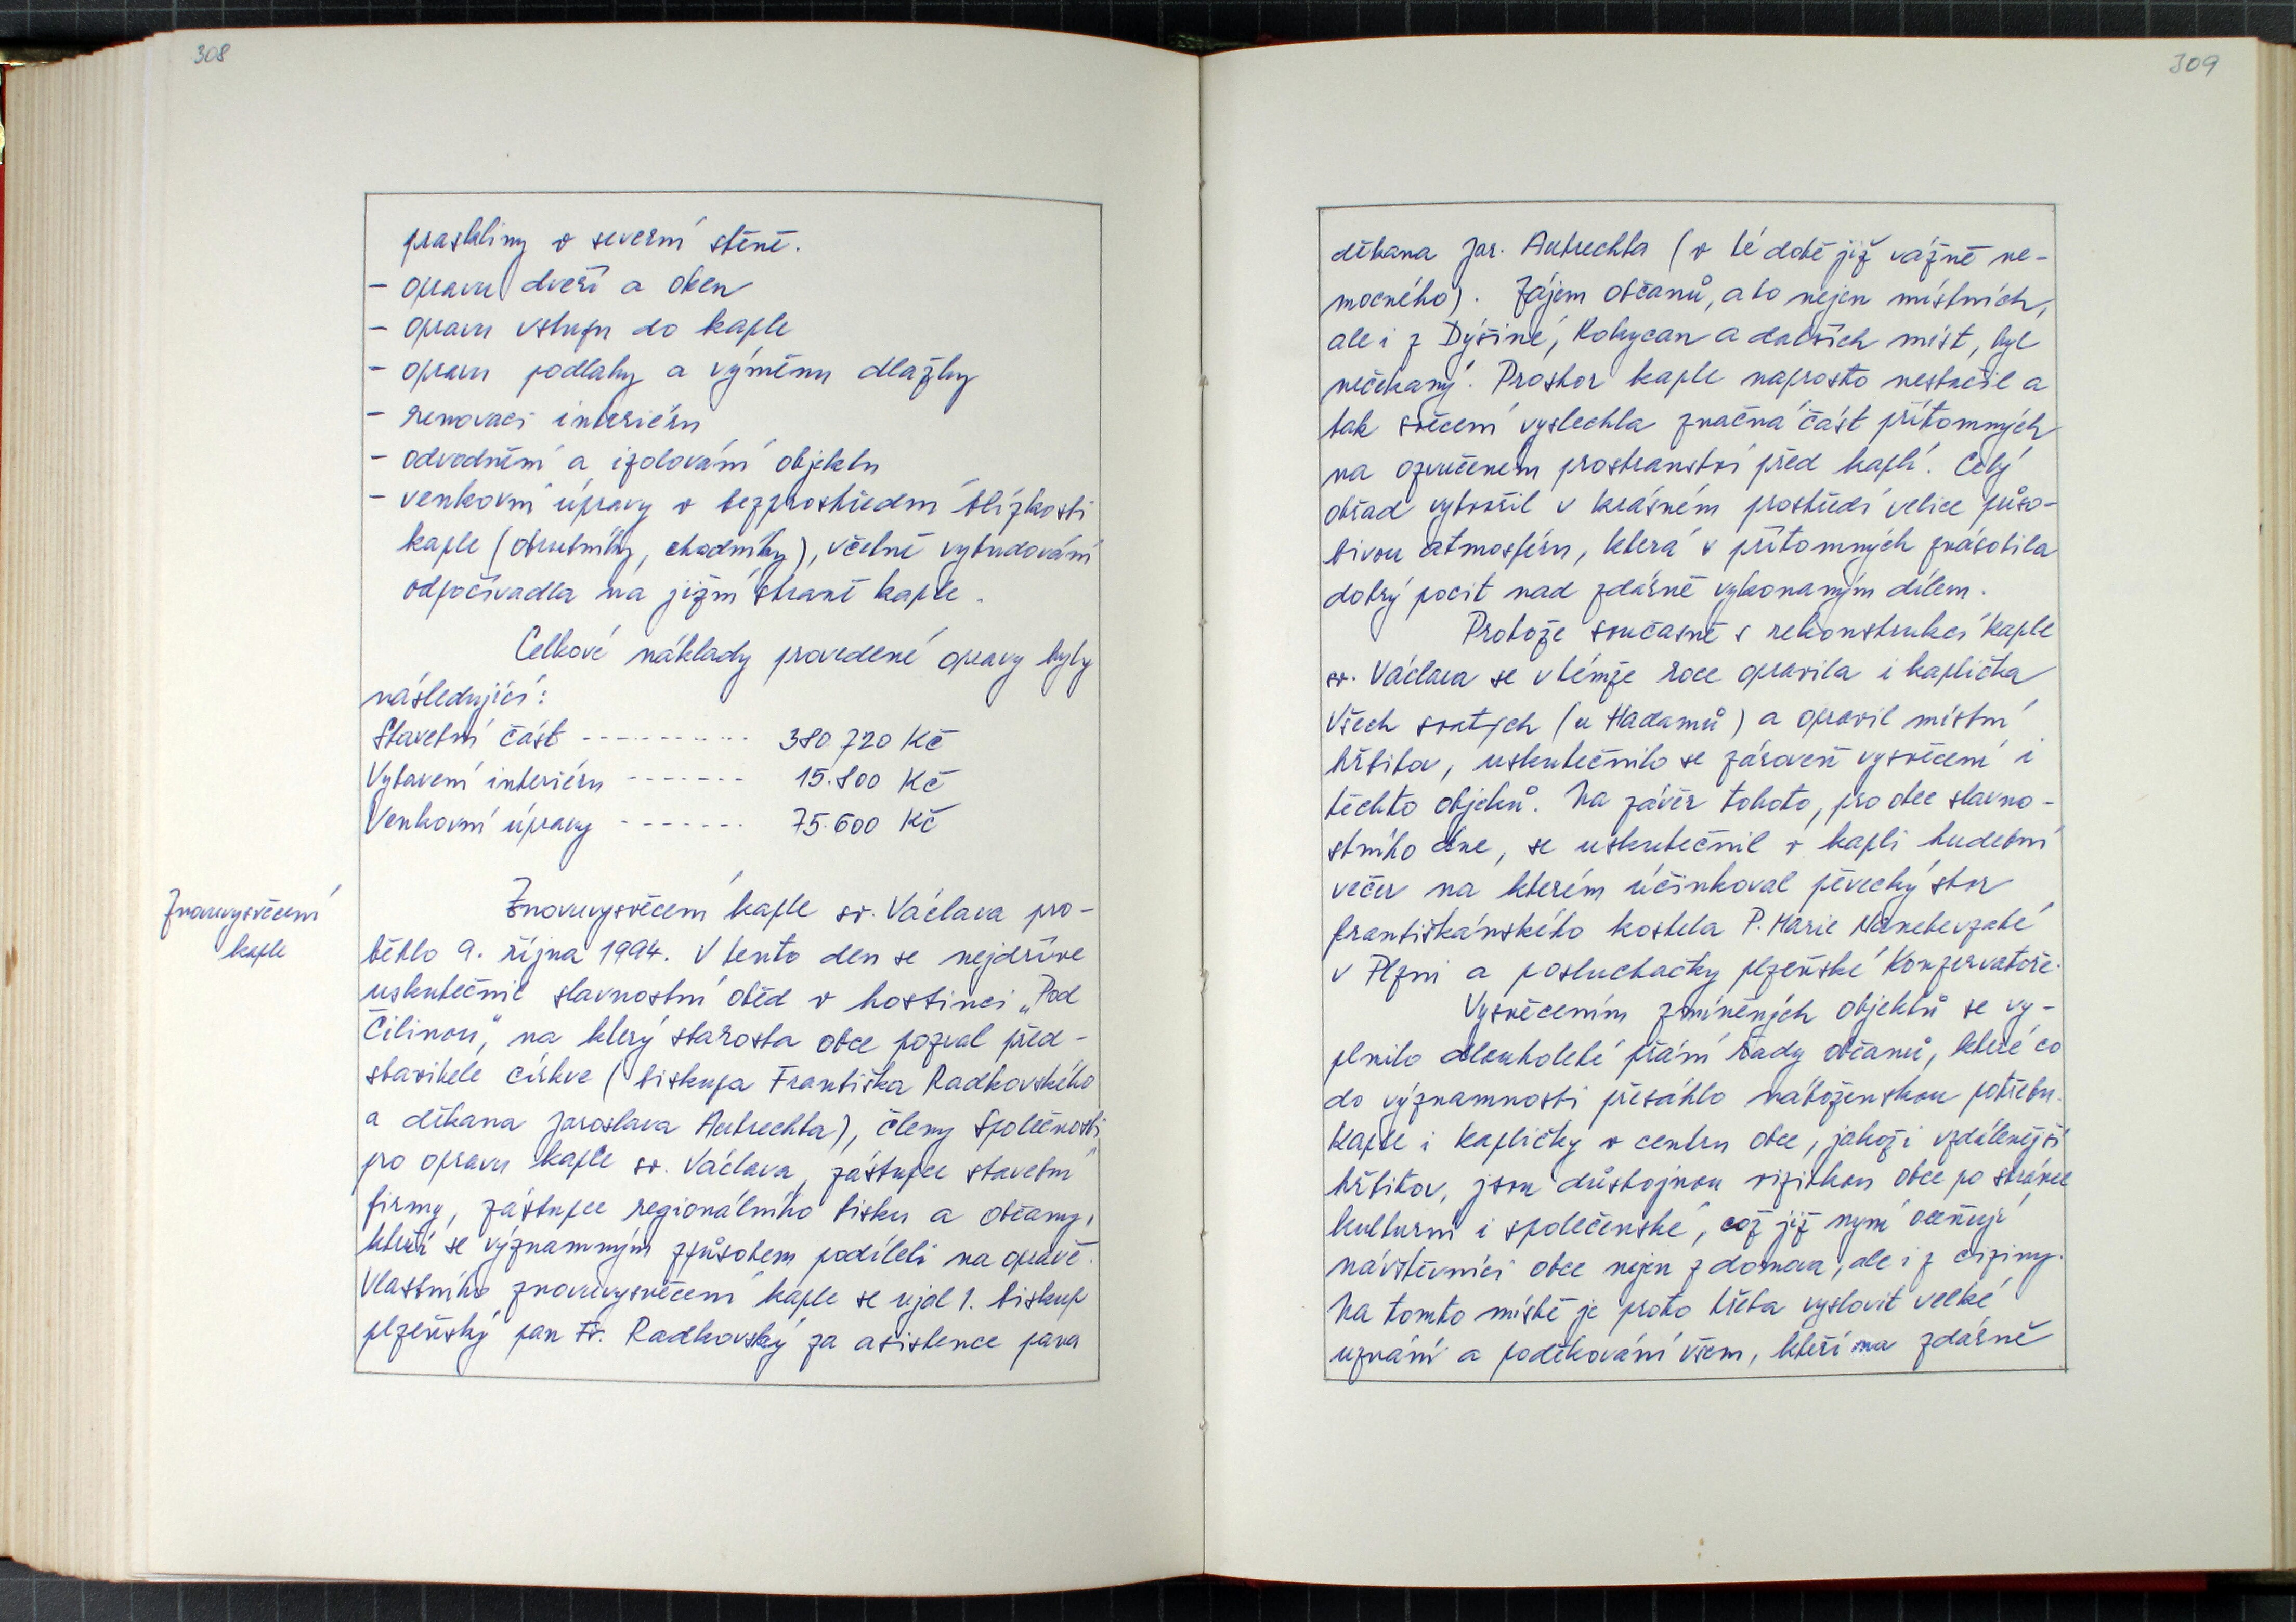 308
praskliny v severní stěně.
- opravu dveří a oken
- opravu vstupu do kaple
- opravu podlahy a výměnu dlažby
- renovaci interiéru
- odvodnění a izolování objektu
- venkovní úpravy v bezprostřední blízkosti
kaple (obrubníky, chodníky), včetně vybudování
odpočívadla na jižní straně kaple.
Celkové náklady provedené opravy byly
následující:
Stavební část ----------- 380.720 Kč
Vybavení interiéru ------- 15.800 Kč
Venkovní úpravy ------- 75.600 Kč
Znovuvysvěcení
kaple
Znovuvysvěcení kaple sv. Václava pro-
běhlo 9. října 1994. V tento den se nejdříve
uskutečnil slavnostní oběd v hostinci „Pod
Čilinou", na který starosta obce pozval před-
stavitele církve (biskupa Františka Radkovského
a děkana Jaroslava Autrechta), členy Společnosti
pro opravu kaple sv. Václava, zástupce stavební
firmy, zástupce regionálního tisku a občany,
kteří se významným způsobem podíleli na opravě.
Vlastního znovuvysvěcení kaple se ujal 1. biskup
plzeňský pan Fr. Radkovský za asistence pana
309
děkana Jar. Autrechta (v té době již vážně ne-
mocného). Zájem občanů, a to nejen místních,
ale i z Dýšiné, Rokycan a dalších míst, byl
nečekaný. Prostor kaple naprosto nestačil a
tak svěcení vyslechla značná část přítomných
na ozvučeném prostranství před kaplí. Celý
obřad vytvořil v krásném prostředí velice půso-
bivou atmosféru, která v přítomných znásobila
dobrý pocit nad zdárně vykonaným dílem.
Protože současně s rekonstrukcí kaple
sv. Václava se v témže roce opravila i kaplička
Všech svatých (u Hadamů) a opravil místní
hřbitov, uskutečnilo se zároveň vysvěcení i
těchto objektů. Na závěr tohoto, pro obec slavno-
stního dne, se uskutečnil v kapli hudební
večer na kterém účinkoval pěvecký sbor
františkánského kostela P. Marie Nanebevzaté
v Plzni a posluchačky plzeňské Konzervatoře.
Vysvěcením zmíněných objektů se vy-
plnilo dlouholeté přání řady občanů, které co
do významnosti přesáhlo náboženskou potřebu.
Kaple i kapličky v centru obce, jakož i vzdálenější
hřbitov, jsou důstojnou vizitkou obce po stránce
kulturní i společenské, což již nyní oceňují
návštěvníci obce nejen z domova, ale i z ciziny.
Na tomto místě je proto třeba vyslovit velké
uznání a poděkování všem, kteří na zdárně